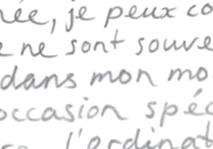 ée, je peux co
ne sont souve
dans mon mo
occasion spéc
l'ordinat